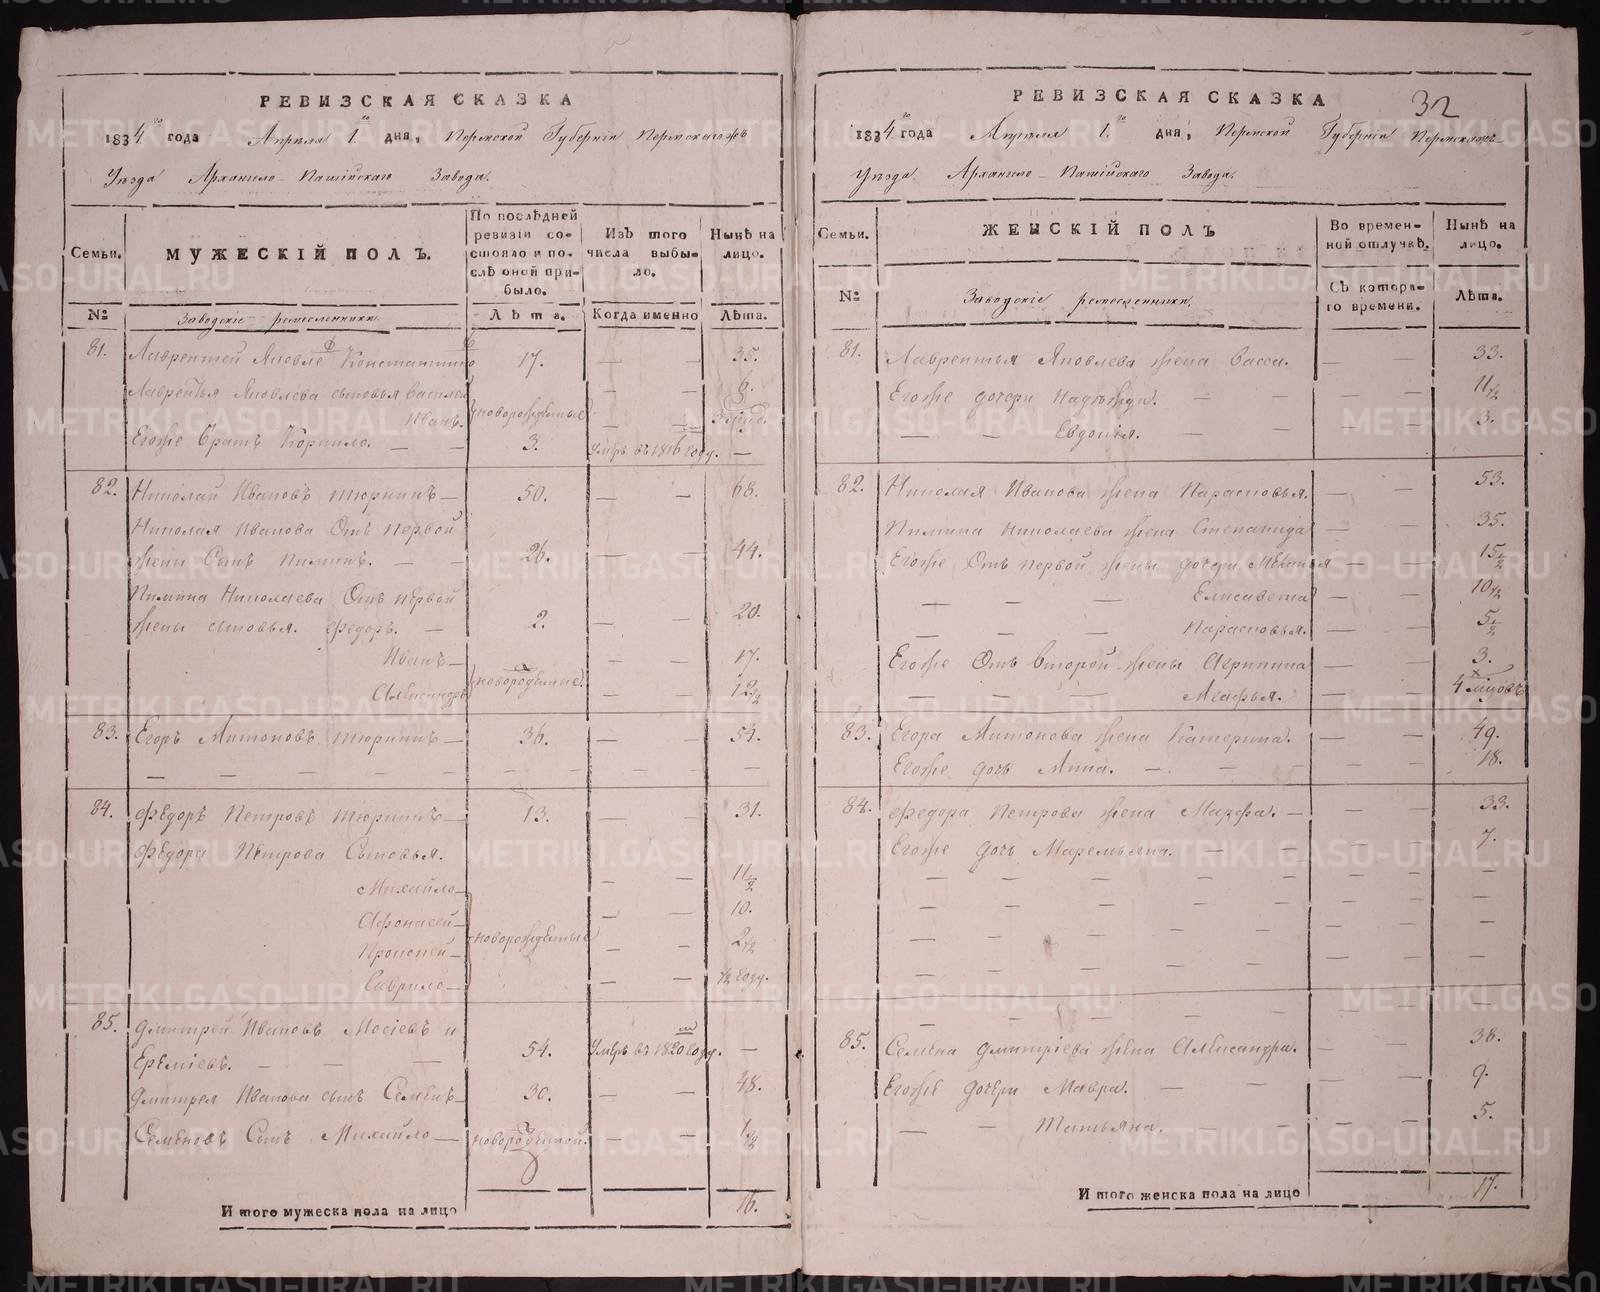 РЕВИЗСКАЯ СКАЗКА
1834.го года Апреля 1.го дня, Пермской Губерніи Пермскагожъ
Уезда Архангело-Пашійскаго Завода.
Семьи.
МУЖЕСКІЙ ПОЛЪ.
По послѣдней
ревизіи со-
стояло и по-
слѣ оной при-
было.
Изъ того
числа выбы-
ло.
Нынѣ на
лицо.
№
Заводскіе ремесленники
Лѣта.
Когда именно
Лѣта.
81. Лаврентей Яковле 17. — — 35.
Лаврентья Яковлева сыновья Василей — — 6.
Иванъ. новорожденные —
Егоже братъ Корнило. — — 3. Умеръ въ 1816 году. —
82. Николай Ивановъ Тюринъ — 50. — — 68.
Николая Иванова Отъ первой
жены Сынъ Пиминъ. — — 26. — — 44.
Пимина Николаева Отъ первой
жены сыновья. Федоръ. — 2. — — 20.
Иванъ — — — 17.
Александръ новорожденные. — — 12 1/2
83. Егоръ Митоновъ Тюринъ — 36. — — 54.
— — — — — — — — —
84. Федоръ Петровъ Тюринъ — 13. — — 31.
Федора Петрова Сыновья.
Михайло — — — 11 1/2
Афонасей — — — 10.
Прокопей — новорожденные — — 2 1/2
Гаврило — — — 1/2 году.
85. Дмитрей Ивановъ Мосіевъ и
Еремѣевъ. — — 54. Умеръ въ 1820 году. —
Дмитрея Иванова сынъ Семенъ — 30. — — 48.
Семеновъ Сынъ Михайло — новорожденной. — — 1 1/2
И того мужеска пола на лицо 16.
РЕВИЗСКАЯ СКАЗКА
32
1834.го года Апреля 1.го дня, Пермской Губерніи Пермскагожъ
Уезда Архангело-Пашійскаго Завода.
Семьи.
ЖЕНСКІЙ ПОЛЪ
Во времен-
ной отлучкѣ.
Нынѣ на
лицо.
№
Заводскіе ремесленники.
Съ котора-
го времени.
Лѣта.
81. Лаврентья Яковлева жена Васса. — — 33.
Егоже дочери Надежда. — — — 11 1/2
— — Евдокія. — — — 3.
82. Николая Иванова жена Парасковья. — — 53.
Пимина Николаева жена Степанида — — 35.
Егоже Отъ первой жены дочери Меланья — — 15 1/2
— — — Елисавета — — 10 1/2
— — — Парасковья. — — 5 1/2
Егоже Отъ второй жены Агрипина — — 3.
— — — Марфья. — — 4 мцовъ
83. Егора Митонова жена Катерина. — — 49.
Егоже дочь Анна. — — — — 18.
84. Федора Петрова жена Марфа. — — — 33.
Егоже дочь Маремьяна. — — — — 7.
— — — — — — — —
— — — — — — — —
— — — — — — — —
— — — — — — — —
— — — — — — — —
85. Семена Дмитріева жена Александра. — — 38.
Егоже дочери Мавра. — — — — 9.
— — Татьяна. — — — — 5.
И того женска пола на лицо 17.
METRIKI.GASO-URAL.RU